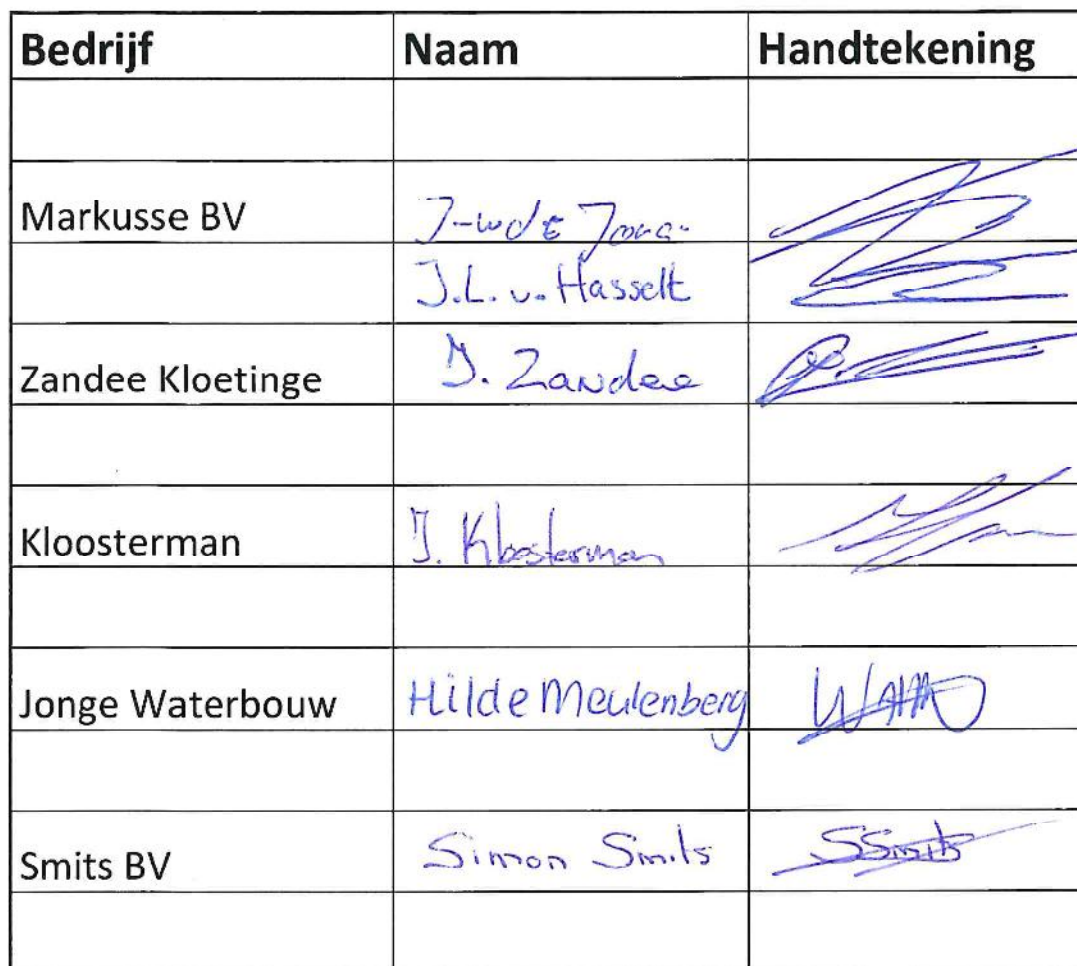 Bedrijf Naam Handtekening
Markusse BV J-W de
J.L. v. Hasselt
Zandee Kloetinge J. Zandee
Kloosterman J. Kloosterman
Jonge Waterbouw Hilde Meulenberg
Smits BV Simon Smits SSmits